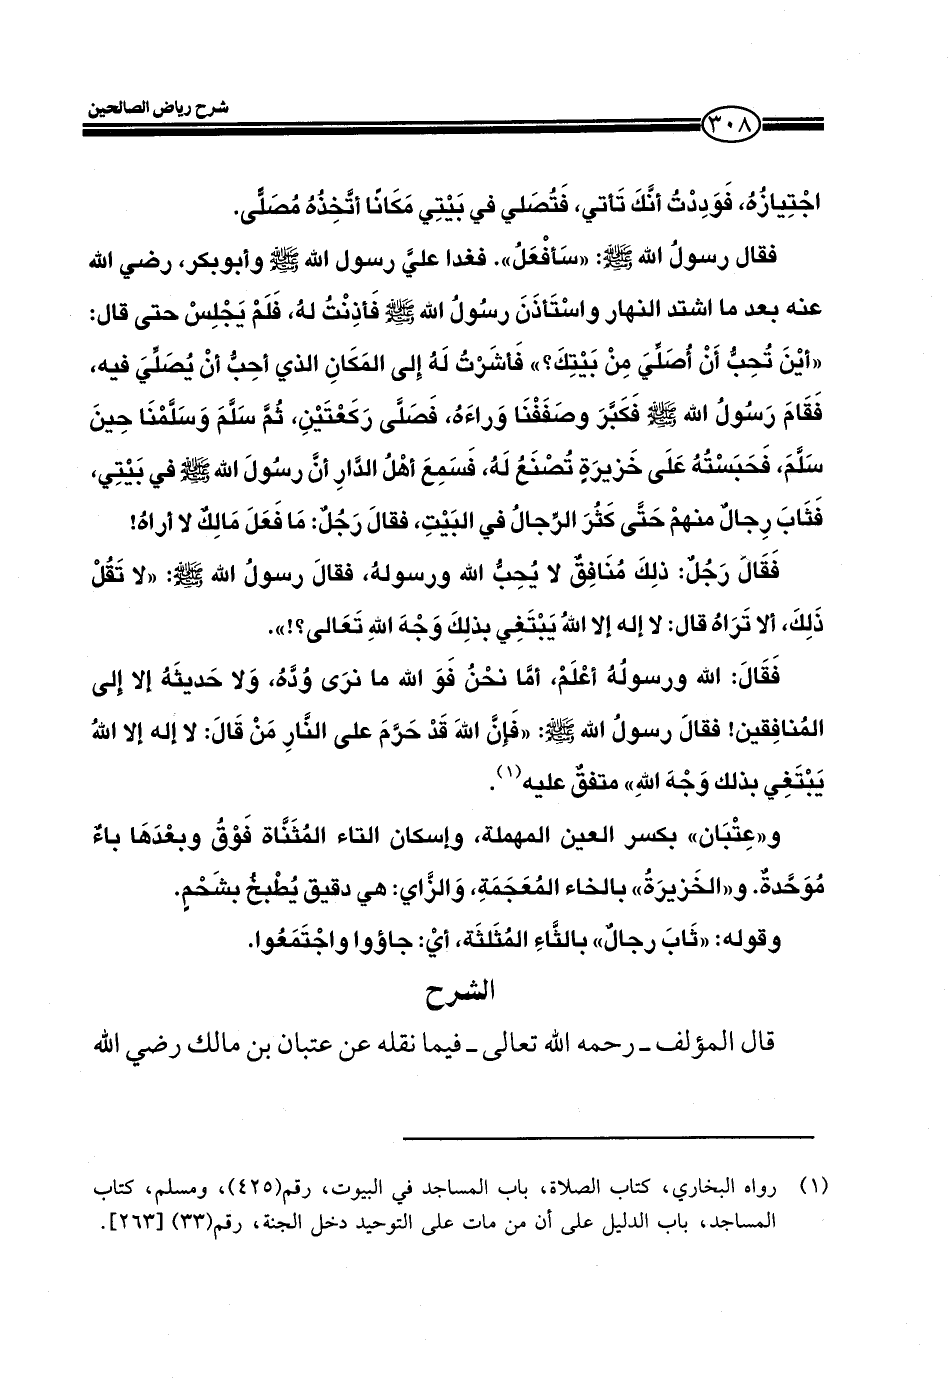 شرح رياض الصالحين
٣٠٨
اجْتِيازُهُ، فَوَدِدْتُ أنَّكَ تَأتي، فَتُصَلي في بَيْتِي مَكَانًا أتَّخِذُهُ مُصَلًّى.
فقال رسولُ الله ﷺ: «سَأفْعَلُ». فغدا عليَّ رسول الله ﷺ وأبوبكر، رضي الله
عنه بعد ما اشتد النهار واسْتَأذَنَ رسُولُ الله ﷺ فَأذِنْتُ لهُ، فَلَمْ يَجْلِسْ حتى قال:
«أيْنَ تُحِبُّ أنْ أُصَلِّيَ مِنْ بَيْتِكَ؟» فَأشَرْتُ لَهُ إلى المَكَانِ الذي أحِبُّ أنْ يُصَلِّيَ فيه،
فَقَامَ رَسُولُ الله ﷺ فَكَبَّرَ وصَفَفْنَا وراءَهُ، فَصَلَّى رَكعَتَيْنِ، ثُمَّ سَلَّمَ وَسَلَّمْنَا حِينَ
سَلَّمَ، فَحَبَسْتُهُ عَلَى خَزِيرَةٍ تُصْنَعُ لَهُ، فَسَمِعَ أهْلُ الدَّارِ أنَّ رسولَ الله ﷺ في بَيْتِي،
فَثَابَ رِجالٌ منهمْ حَتَّى كَثُرَ الرِّجالُ في البَيْتِ، فقالَ رَجُلٌ: مَا فَعَلَ مَالِكٌ لا أراهُ!
فَقَالَ رَجُلٌ: ذلِكَ مُنَافِقٌ لا يُحِبُّ الله ورسولهُ، فقالَ رسولُ الله ﷺ: «لا تَقُلْ
ذَلِكَ، ألا تَرَاهُ قال: لا إله إلا اللهُ يَبْتَغِي بذلِكَ وَجْهَ اللهِ تَعَالى؟!».
فَقَالَ: الله ورسولُهُ أعْلَمْ، أمَّا نحْنُ فَوَ الله ما نرَى وُدَّهُ، وَلا حَديثَهُ إلا إلى
المُنافِقين! فقالَ رسولُ الله ﷺ: «فَإنَّ اللهَ قَدْ حَرَّمَ على النَّارِ مَنْ قَالَ: لا إله إلا اللهُ
يَبْتَغِي بذلك وَجْهَ اللهِ» متفقٌ عليه(١).
و«عِتْبَان» بكسر العين المهملة، وإسكان التاء المُثَنَّاة فَوْقُ وبعْدَهَا باءٌ
مُوَحَّدةٌ. و«الخَزِيرَةُ» بالخاء المُعَجَمَةِ، وَالزَّاي: هي دقيق يُطْبخُ بشَحْمٍ.
وقوله: «ثَابَ رجالٌ» بالثَّاءِ المُثَلثَة، أيْ: جاؤوا واجْتَمَعُوا.
الشرح
قال المؤلف ـ رحمه الله تعالى ـ فيما نقله عن عتبان بن مالك رضي الله
(١) رواه البخاري، كتاب الصلاة، باب المساجد في البيوت، رقم(٤٢٥)، ومسلم، كتاب
المساجد، باب الدليل على أن من مات على التوحيد دخل الجنة، رقم(٣٣) [٢٦٣].